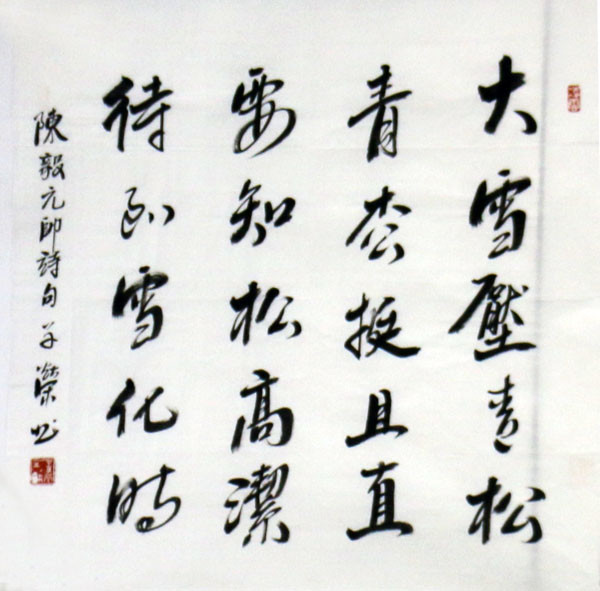 大雪壓青松
青松挺且直
要知松高潔
待到雪化時
陳毅元帥詩句 子榮书